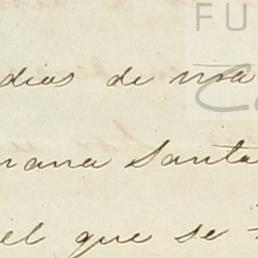 FU
dias de nra
mana Santa
el que se